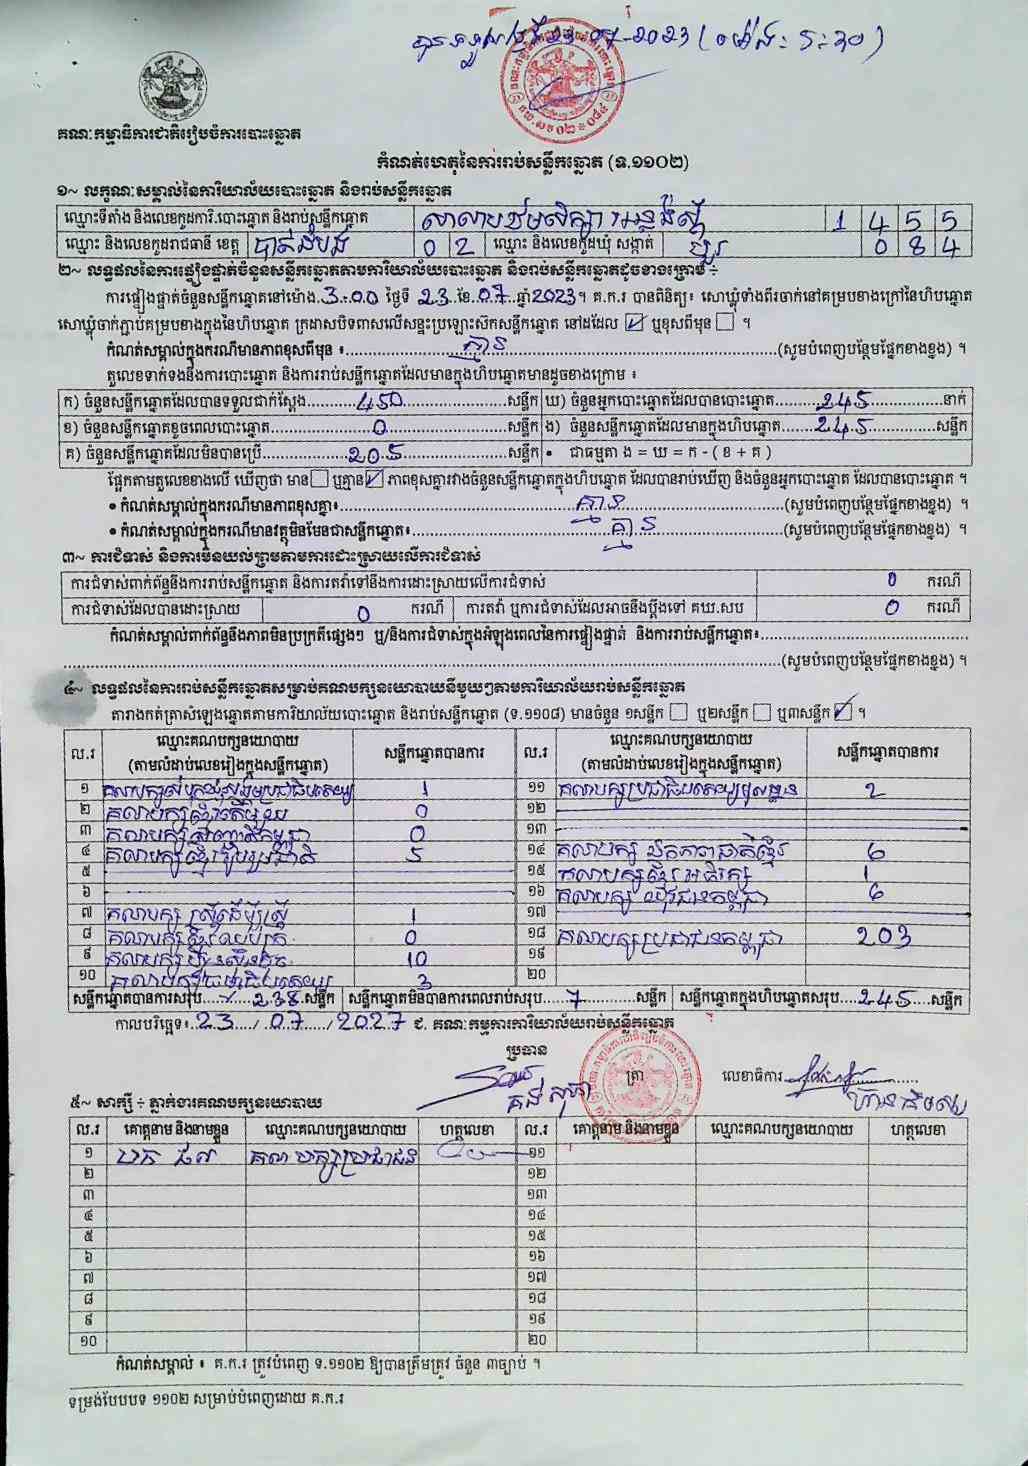 23-07-2023 (ម៉ោង: 5:30)
គណៈកម្មាធិការជាតិរៀបចំការបោះឆ្នោត
កំណត់ហេតុនៃការរាប់សន្លឹកឆ្នោត (ទ.១១០២)
១~ លក្ខណៈសម្គាល់នៃការិយាល័យបោះឆ្នោត និងរាប់សន្លឹកឆ្នោត
ឈ្មោះទីតាំង និងលេខកូដការិ.បោះឆ្នោត និងរាប់សន្លឹកឆ្នោត 1 4 5 5
ឈ្មោះ និងលេខកូដរាជធានី ខេត្ត បាត់ដំបង 0 2 ឈ្មោះ និងលេខកូដឃុំ សង្កាត់ 0 8 4
២~ លទ្ធផលនៃការផ្ទៀងផ្ទាត់ចំនួនសន្លឹកឆ្នោតតាមការិយាល័យបោះឆ្នោត និងរាប់សន្លឹកឆ្នោតដូចខាងក្រោម ÷
ការផ្ទៀងផ្ទាត់ចំនួនសន្លឹកឆ្នោតនៅម៉ោង 3:00 ថ្ងៃទី 23 ខែ 07 ឆ្នាំ 2023។ គ.ក.រ បានពិនិត្យ៖ សោឃ្លុំទាំងពីរចាក់នៅគម្របខាងក្រៅនៃហិបឆ្នោត
សោឃ្លុំចាក់ភ្ជាប់គម្របខាងក្នុងនៃហិបឆ្នោត ក្រដាសបិទពាសលើសន្ទះប្រឡោះស៊កសន្លឹកឆ្នោត នៅដដែល ☑ ឬខុសពីមុន ☐ ។
កំណត់សម្គាល់ក្នុងករណីមានភាពខុសពីមុន ៖ គ្មាន (សូមបំពេញបន្ថែមផ្នែកខាងខ្នង) ។
តួលេខទាក់ទងនឹងការបោះឆ្នោត និងការរាប់សន្លឹកឆ្នោតដែលមានក្នុងហិបឆ្នោតមានដូចខាងក្រោម ៖
ក) ចំនួនសន្លឹកឆ្នោតដែលបានទទួលជាក់ស្តែង 450 សន្លឹក ឃ) ចំនួនអ្នកបោះឆ្នោតដែលបានបោះឆ្នោត 245 នាក់
ខ) ចំនួនសន្លឹកឆ្នោតខូចពេលបោះឆ្នោត 0 សន្លឹក ង) ចំនួនសន្លឹកឆ្នោតដែលមានក្នុងហិបឆ្នោត 245 សន្លឹក
គ) ចំនួនសន្លឹកឆ្នោតដែលមិនបានប្រើ 205 សន្លឹក • ជាធម្មតា ង = ឃ = ក - ( ខ + គ )
ផ្អែកតាមតួលេខខាងលើ ឃើញថា មាន ☐ ឬគ្មាន ☑ ភាពខុសគ្នារវាងចំនួនសន្លឹកឆ្នោតក្នុងហិបឆ្នោត ដែលបានរាប់ឃើញ និងចំនួនអ្នកបោះឆ្នោត ដែលបានបោះឆ្នោត ។
• កំណត់សម្គាល់ក្នុងករណីមានភាពខុសគ្នា៖ គ្មាន (សូមបំពេញបន្ថែមផ្នែកខាងខ្នង) ។
• កំណត់សម្គាល់ក្នុងករណីមានវត្ថុមិនមែនជាសន្លឹកឆ្នោត៖ គ្មាន (សូមបំពេញបន្ថែមផ្នែកខាងខ្នង) ។
៣~ ការជំទាស់ និងការមិនយល់ព្រមតាមការដោះស្រាយលើការជំទាស់
ការជំទាស់ពាក់ព័ន្ធនឹងការរាប់សន្លឹកឆ្នោត និងការតវ៉ាទៅនឹងការដោះស្រាយលើការជំទាស់ 0 ករណី
ការជំទាស់ដែលបានដោះស្រាយ 0 ករណី ការតវ៉ា ឬការជំទាស់ដែលអាចនឹងប្តឹងទៅ គឃ.សប 0 ករណី
កំណត់សម្គាល់ពាក់ព័ន្ធនឹងភាពមិនប្រក្រតីផ្សេងៗ ឬ/និងការជំទាស់ក្នុងអំឡុងពេលនៃការផ្ទៀងផ្ទាត់ និងការរាប់សន្លឹកឆ្នោត៖
(សូមបំពេញបន្ថែមផ្នែកខាងខ្នង) ។
៤~ លទ្ធផលនៃការរាប់សន្លឹកឆ្នោតសម្រាប់គណបក្សនយោបាយនីមួយៗតាមការិយាល័យរាប់សន្លឹកឆ្នោត
តារាងកត់ត្រាសំឡេងឆ្នោតតាមការិយាល័យបោះឆ្នោត និងរាប់សន្លឹកឆ្នោត (ទ.១១០៨) មានចំនួន ១សន្លឹក ☐ ឬ២សន្លឹក ☐ ឬ៣សន្លឹក ☑ ។
ល.រ ឈ្មោះគណបក្សនយោបាយ (តាមលំដាប់លេខរៀងក្នុងសន្លឹកឆ្នោត) សន្លឹកឆ្នោតបានការ ល.រ ឈ្មោះគណបក្សនយោបាយ (តាមលំដាប់លេខរៀងក្នុងសន្លឹកឆ្នោត) សន្លឹកឆ្នោតបានការ
១ 1 ១១ 2
២ គណបក្សខ្មែរតែមួយ 0 ១២
៣ 0 ១៣
៤ គណបក្សខ្មែររួបរួមជាតិ 5 ១៤ គណបក្ស ឯកភាពជាតិខ្មែរ 6
៥ ១៥ 1
៦ ១៦ គណបក្ស យុវជនកម្ពុជា 6
៧ គណបក្ស ស្ត្រីដើម្បីស្ត្រី 1 ១៧
៨ 0 ១៨ គណបក្សប្រជាជនកម្ពុជា 203
៩ 10 ១៩
១០ 3 ២០
សន្លឹកឆ្នោតបានការសរុប 238 សន្លឹក សន្លឹកឆ្នោតមិនបានការពេលរាប់សរុប 7 សន្លឹក សន្លឹកឆ្នោតក្នុងហិបឆ្នោតសរុប 245 សន្លឹក
កាលបរិច្ឆេទ៖ 23 / 07 / 2027 ជ. គណៈកម្មការការិយាល័យរាប់សន្លឹកឆ្នោត
ប្រធាន ត្រា លេខាធិការ
៥~ សាក្សី ÷ ភ្នាក់ងារគណបក្សនយោបាយ
ល.រ គោត្តនាម និងនាមខ្លួន ឈ្មោះគណបក្សនយោបាយ ហត្ថលេខា ល.រ គោត្តនាម និងនាមខ្លួន ឈ្មោះគណបក្សនយោបាយ ហត្ថលេខា
១ គណបក្សប្រជាជន ១១
២ ១២
៣ ១៣
៤ ១៤
៥ ១៥
៦ ១៦
៧ ១៧
៨ ១៨
៩ ១៩
១០ ២០
កំណត់សម្គាល់ ៖ គ.ក.រ ត្រូវបំពេញ ទ.១១០២ ឱ្យបានត្រឹមត្រូវ ចំនួន ៣ច្បាប់ ។
ទម្រង់បែបបទ ១១០២ សម្រាប់បំពេញដោយ គ.ក.រ